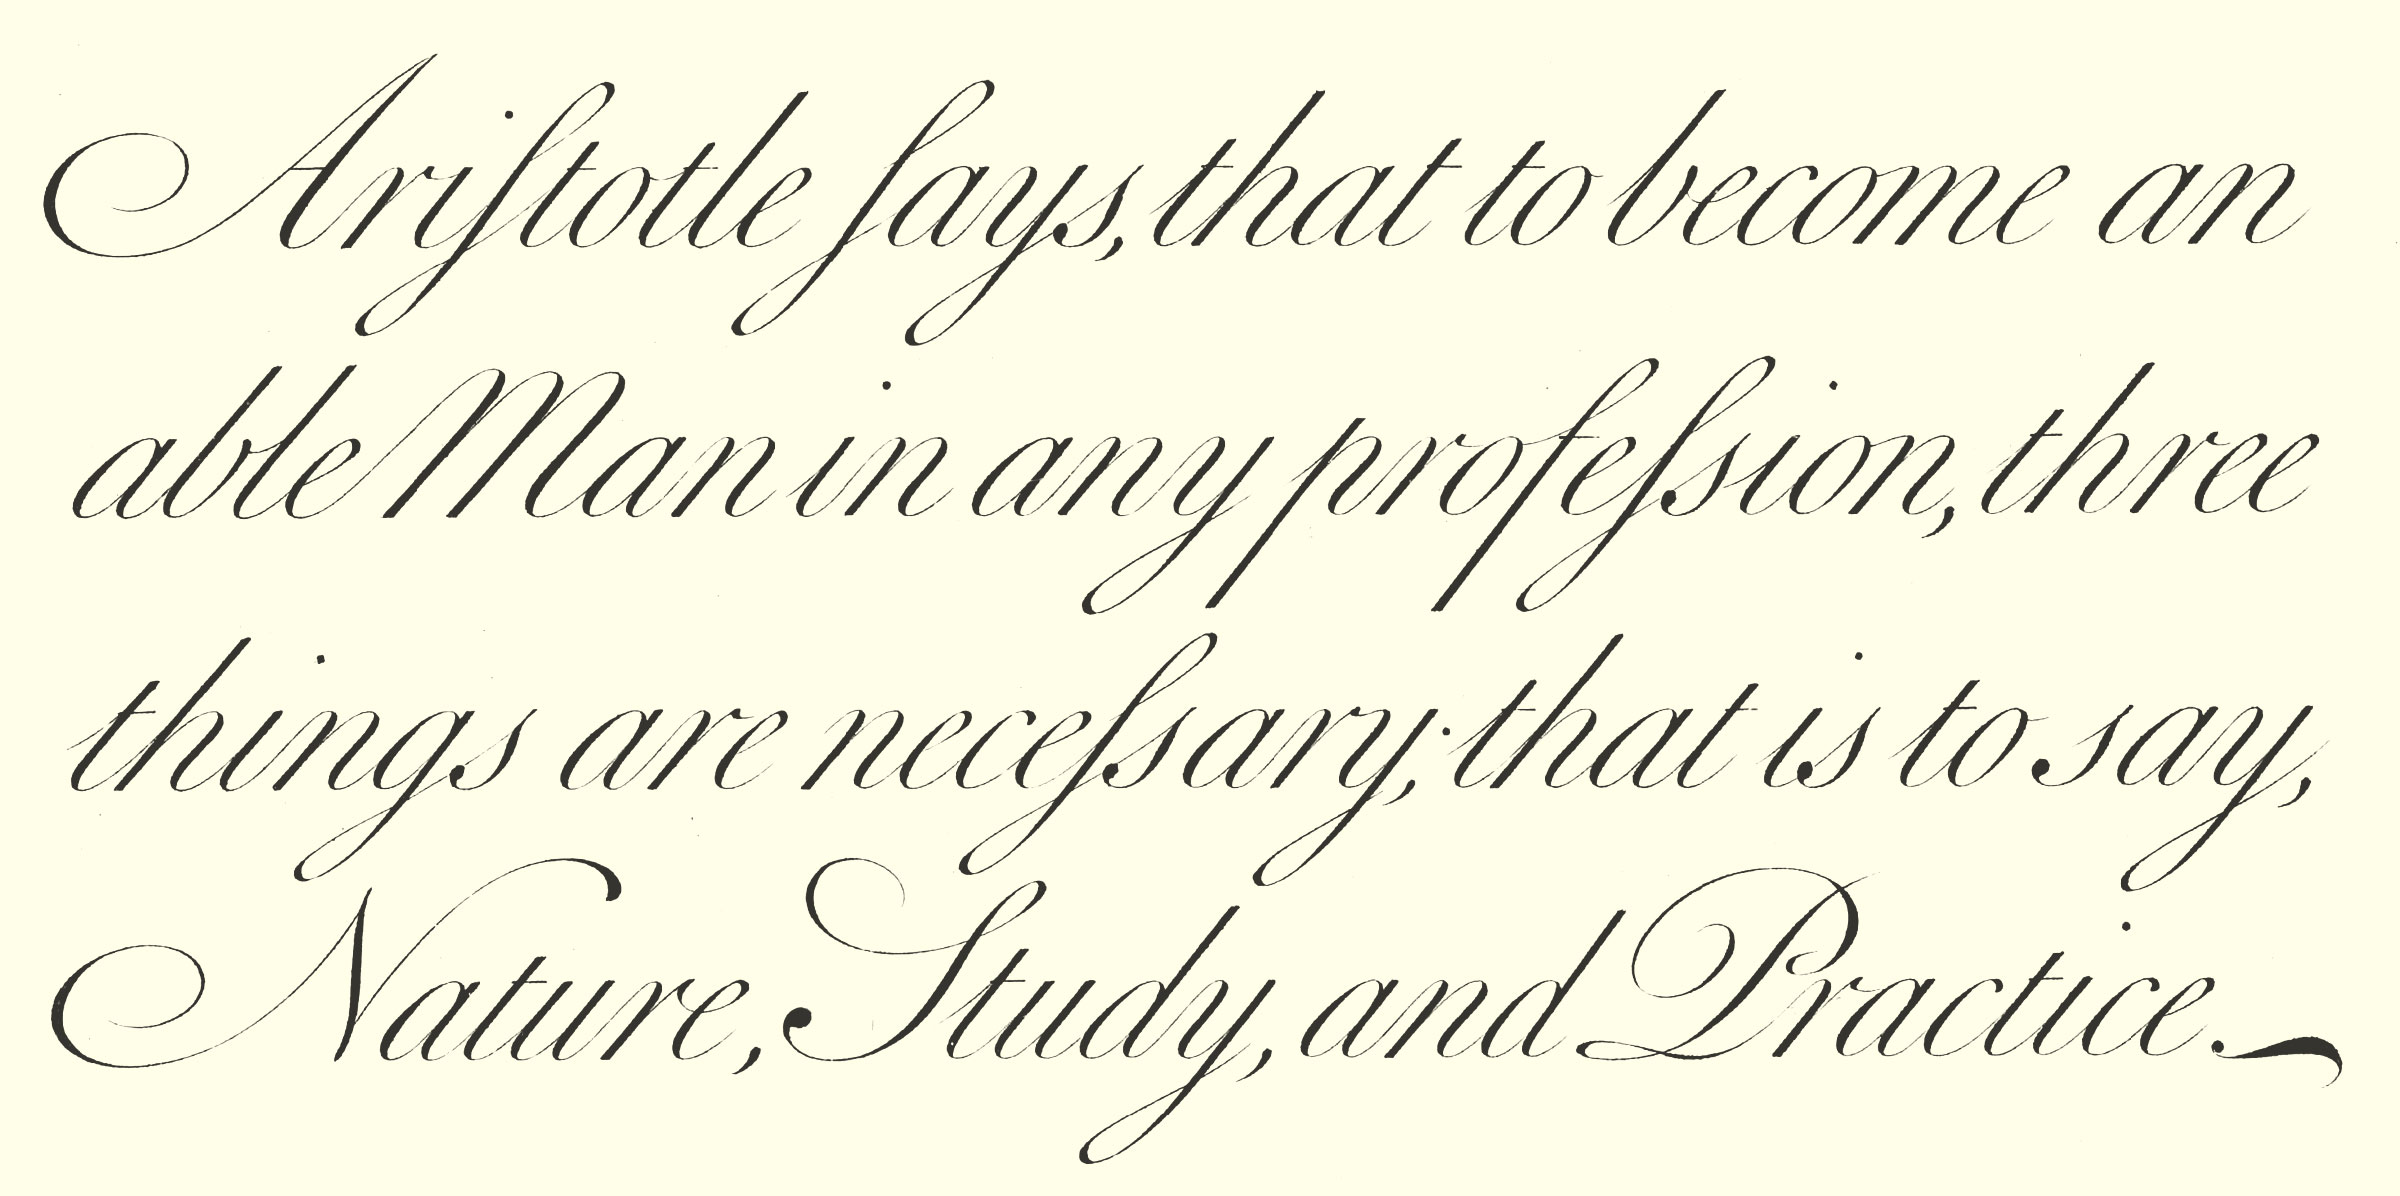 Ariſtotle ſays, that to become an
able Man in any profeſsion, three
things are neceſsary; that is to say,
Nature, Study, and Practice.